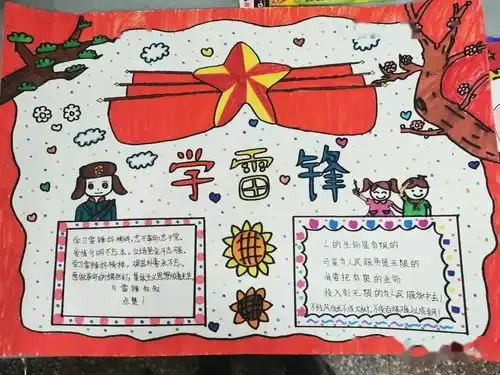 学雷锋
学习雷锋好榜样,忠于革命忠于党,
爱憎分明不忘本,立场坚定斗志强,
学习雷锋好榜样,艰苦朴素永不忘,
愿做革命的螺丝钉,集体主义思想放光芒
为雷锋叔叔
点赞!
人的生命是有限的
可是为人民服务是无限的
我要把有限的生命
投入到无限的为人民服务中去!
不经风雨不成大树,不受百炼难以成钢!